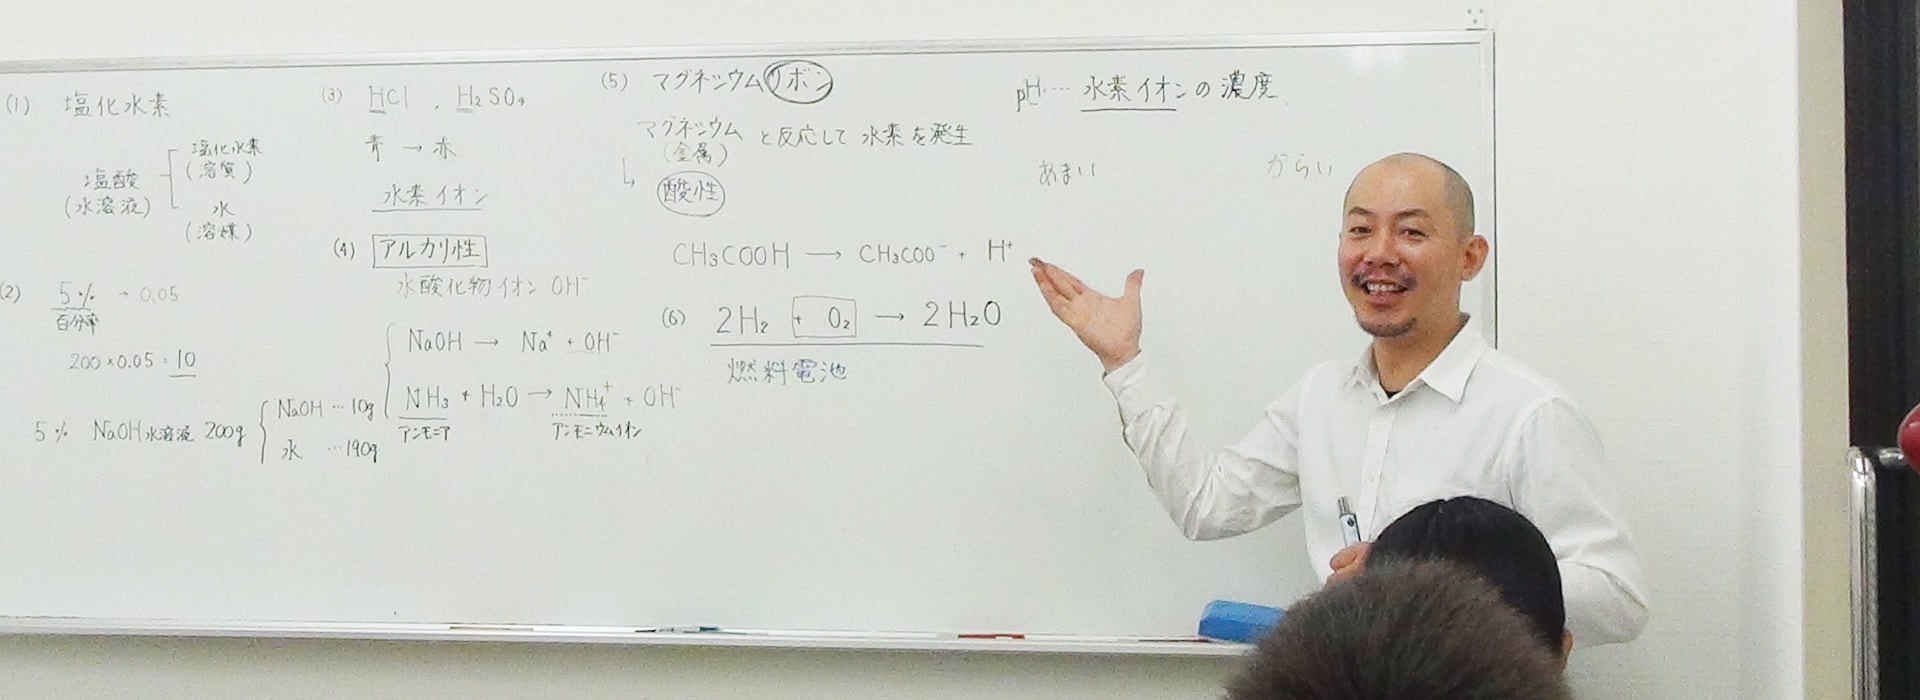 (1) 塩化水素
塩酸
(水溶液)
塩化水素
(溶質)
水
(溶媒)
(2) 5% → 0.05
百分率
200×0.05=10
5% NaOH水溶液 200g
NaOH…10g
水 …190g
(3) HCl , H₂SO₄
青→赤
水素イオン
(4) アルカリ性
水酸化物イオン OH⁻
NaOH → Na⁺ + OH⁻
NH₃ + H₂O → NH₄⁺ + OH⁻
アンモニア アンモニウムイオン
(5) マグネシウムリボン
マグネシウム と反応して 水素を発生
(金属)
酸性
CH₃COOH → CH₃COO⁻ + H⁺
(6) 2H₂ + O₂ → 2H₂O
燃料電池
pH… 水素イオンの濃度
あまい からい